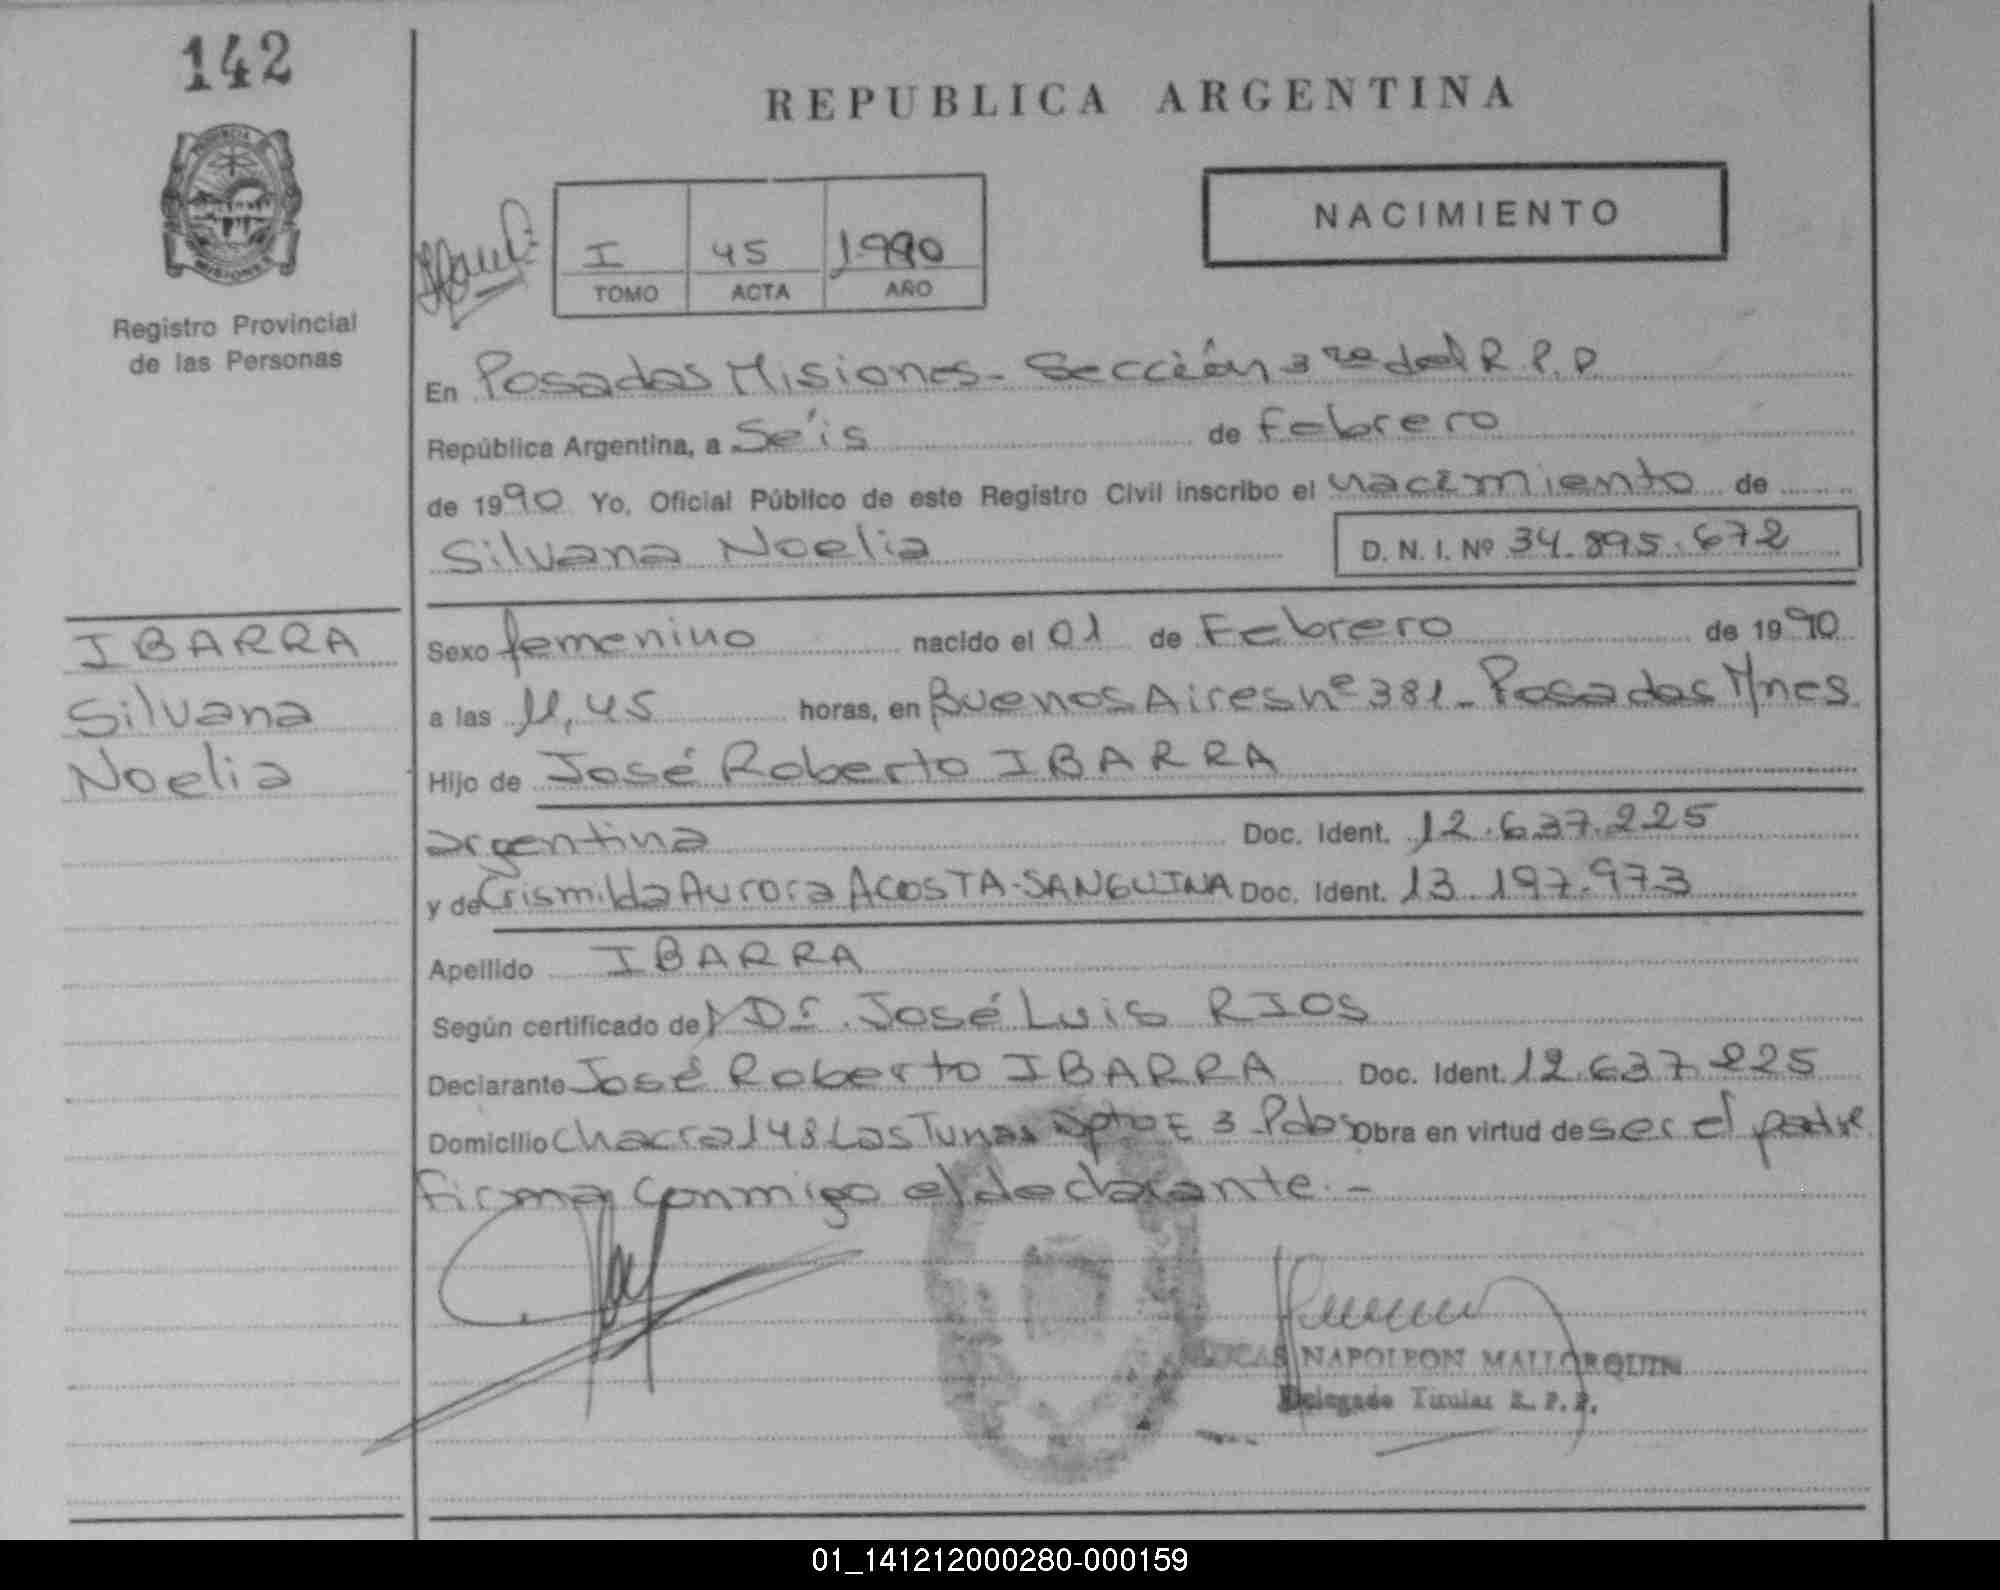 142
REPUBLICA ARGENTINA
PROVINCIA
MISIONES
Registro Provincial
de las Personas
NACIMIENTO
I 45 1.990
TOMO ACTA AÑO
En Posadas Misiones - Sección 3ra del R.P.P.
República Argentina, a Séis de Febrero
de 1990 Yo, Oficial Público de este Registro Civil inscribo el nacimiento de
Silvana Noelia D. N. I. Nº 34.895.672
IBARRA
Silvana
Noelia
Sexo femenino nacido el 01 de Febrero de 1990
a las 11,45 horas, en Buenos Aires nº 381 - Posadas Mnes
Hijo de José Roberto IBARRA
argentina Doc. Ident. 12.637.225
y de Crismilda Aurora ACOSTA-SANGUINA Doc. Ident. 13.197.973
Apellido IBARRA
Según certificado de Dr. José Luis RIOS
Declarante José Roberto IBARRA Doc. Ident. 12.637.225
Domicilio Chacra 148 Las Tunas Dpto E 3 - Pdas Obra en virtud de ser el padre
Firma conmigo el declarante. -
LUCAS NAPOLEON MALLORQUIN
Delegado Titular R. P. P.
01_141212000280-000159